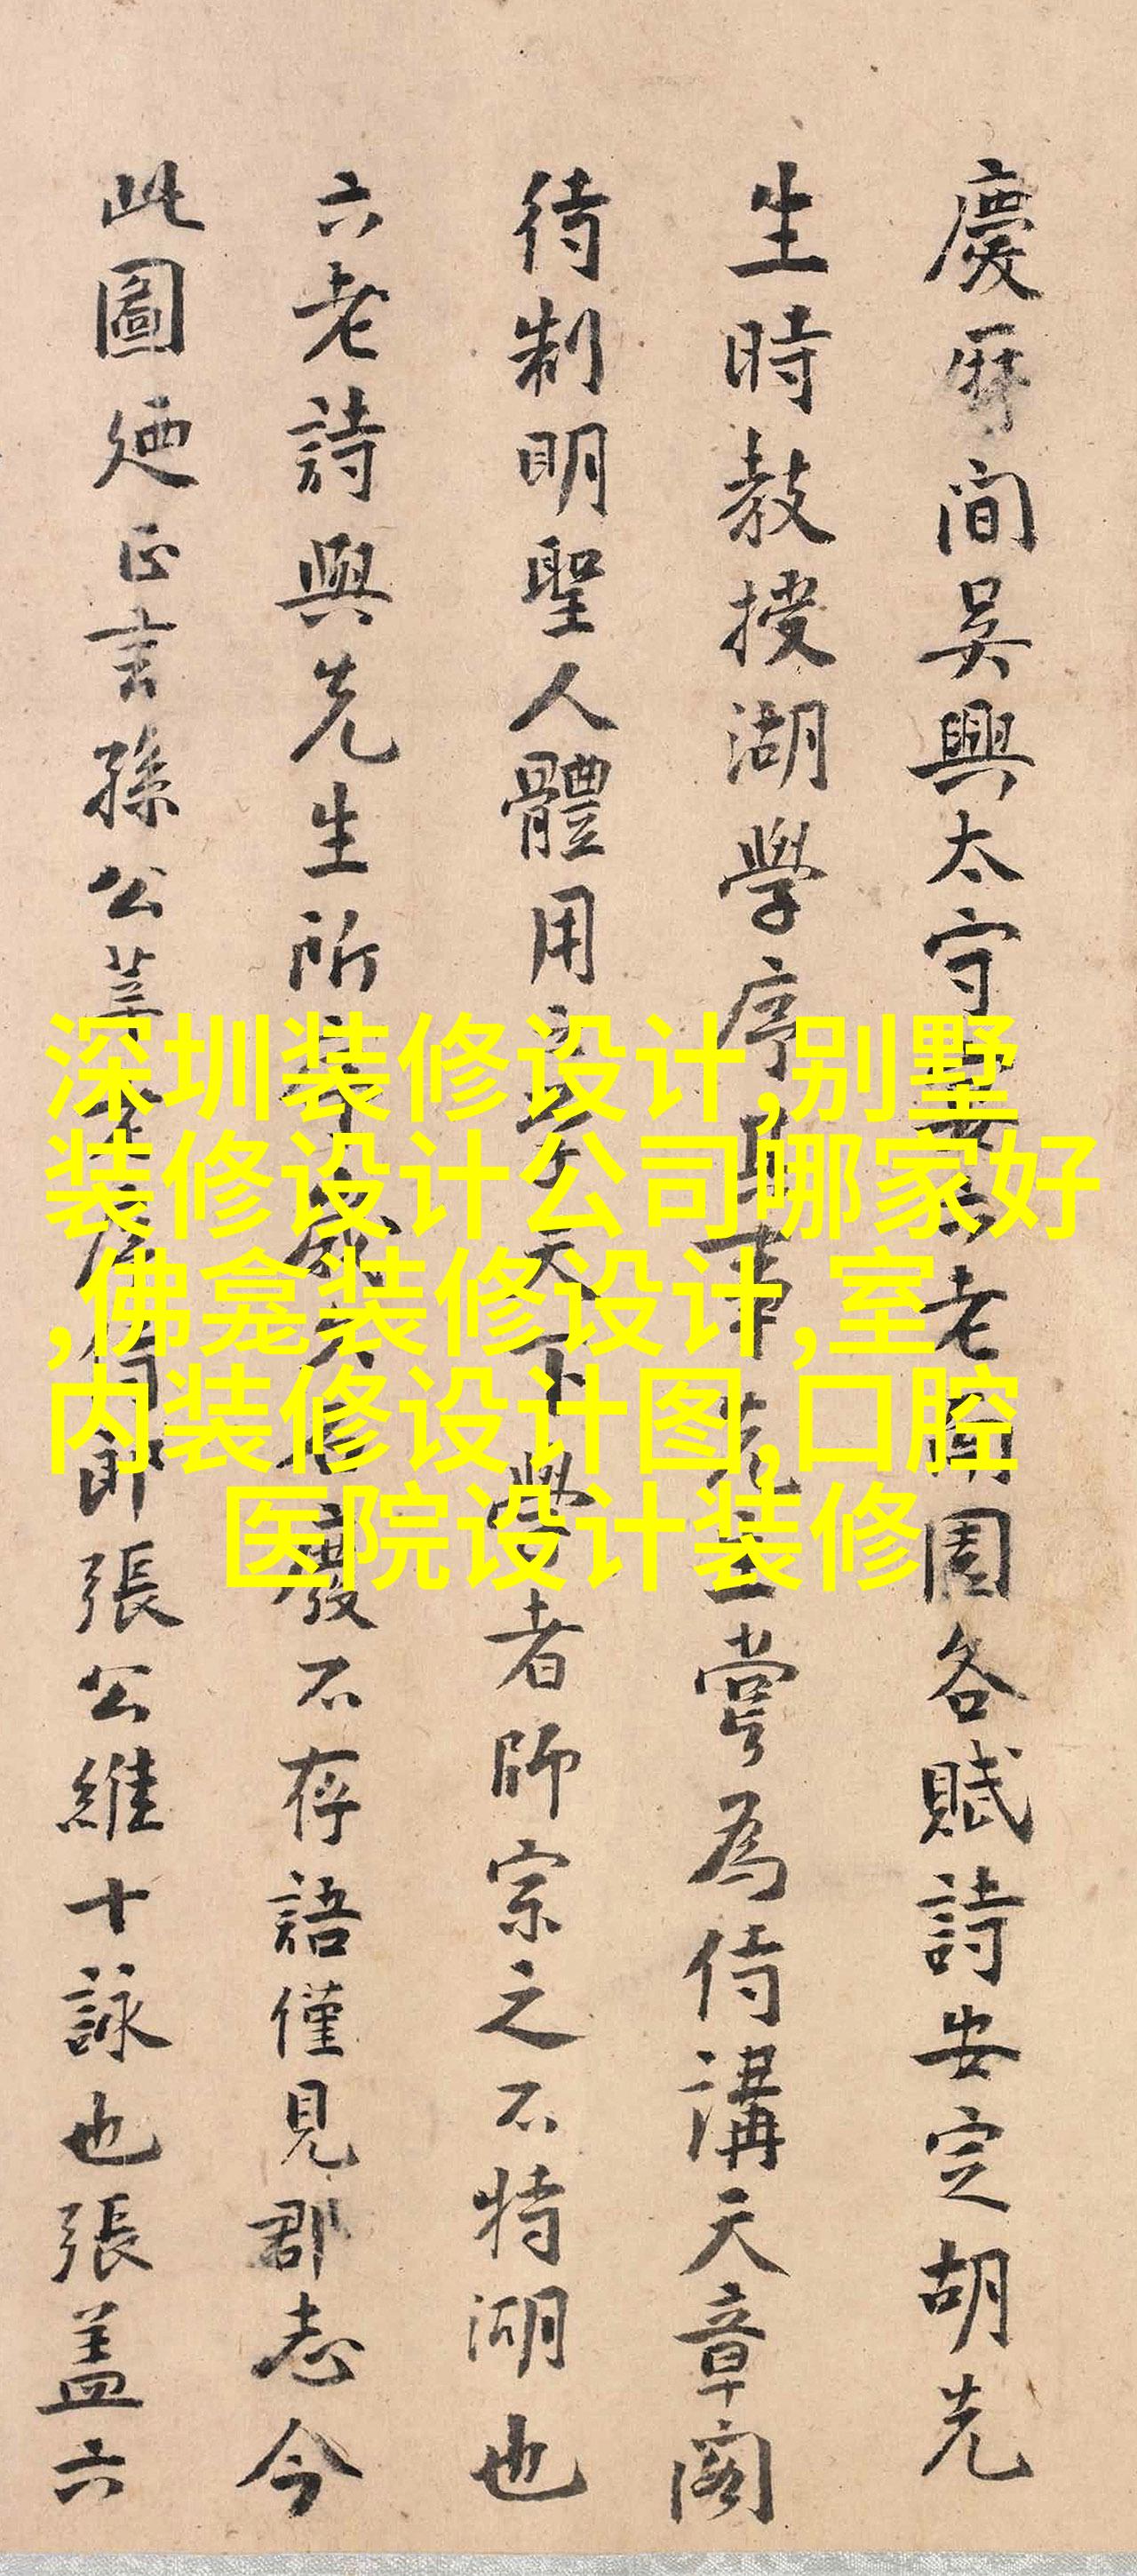 慶厯間吳興太守宴六老南園各賦詩安定胡先
生時教授湖學序其事先生嘗為侍講天章閣
待制明聖人體用之學天下學者師宗之不特湖也
六老詩與先生所序歲久廢不存語僅見郡志今
此圖廼正言孫公莘老序侍郎張公維十詠也張蓋六
深圳装修设计,别墅
装修设计公司哪家好
,佛龛装修设计,室
内装修设计图,口腔
医院设计装修